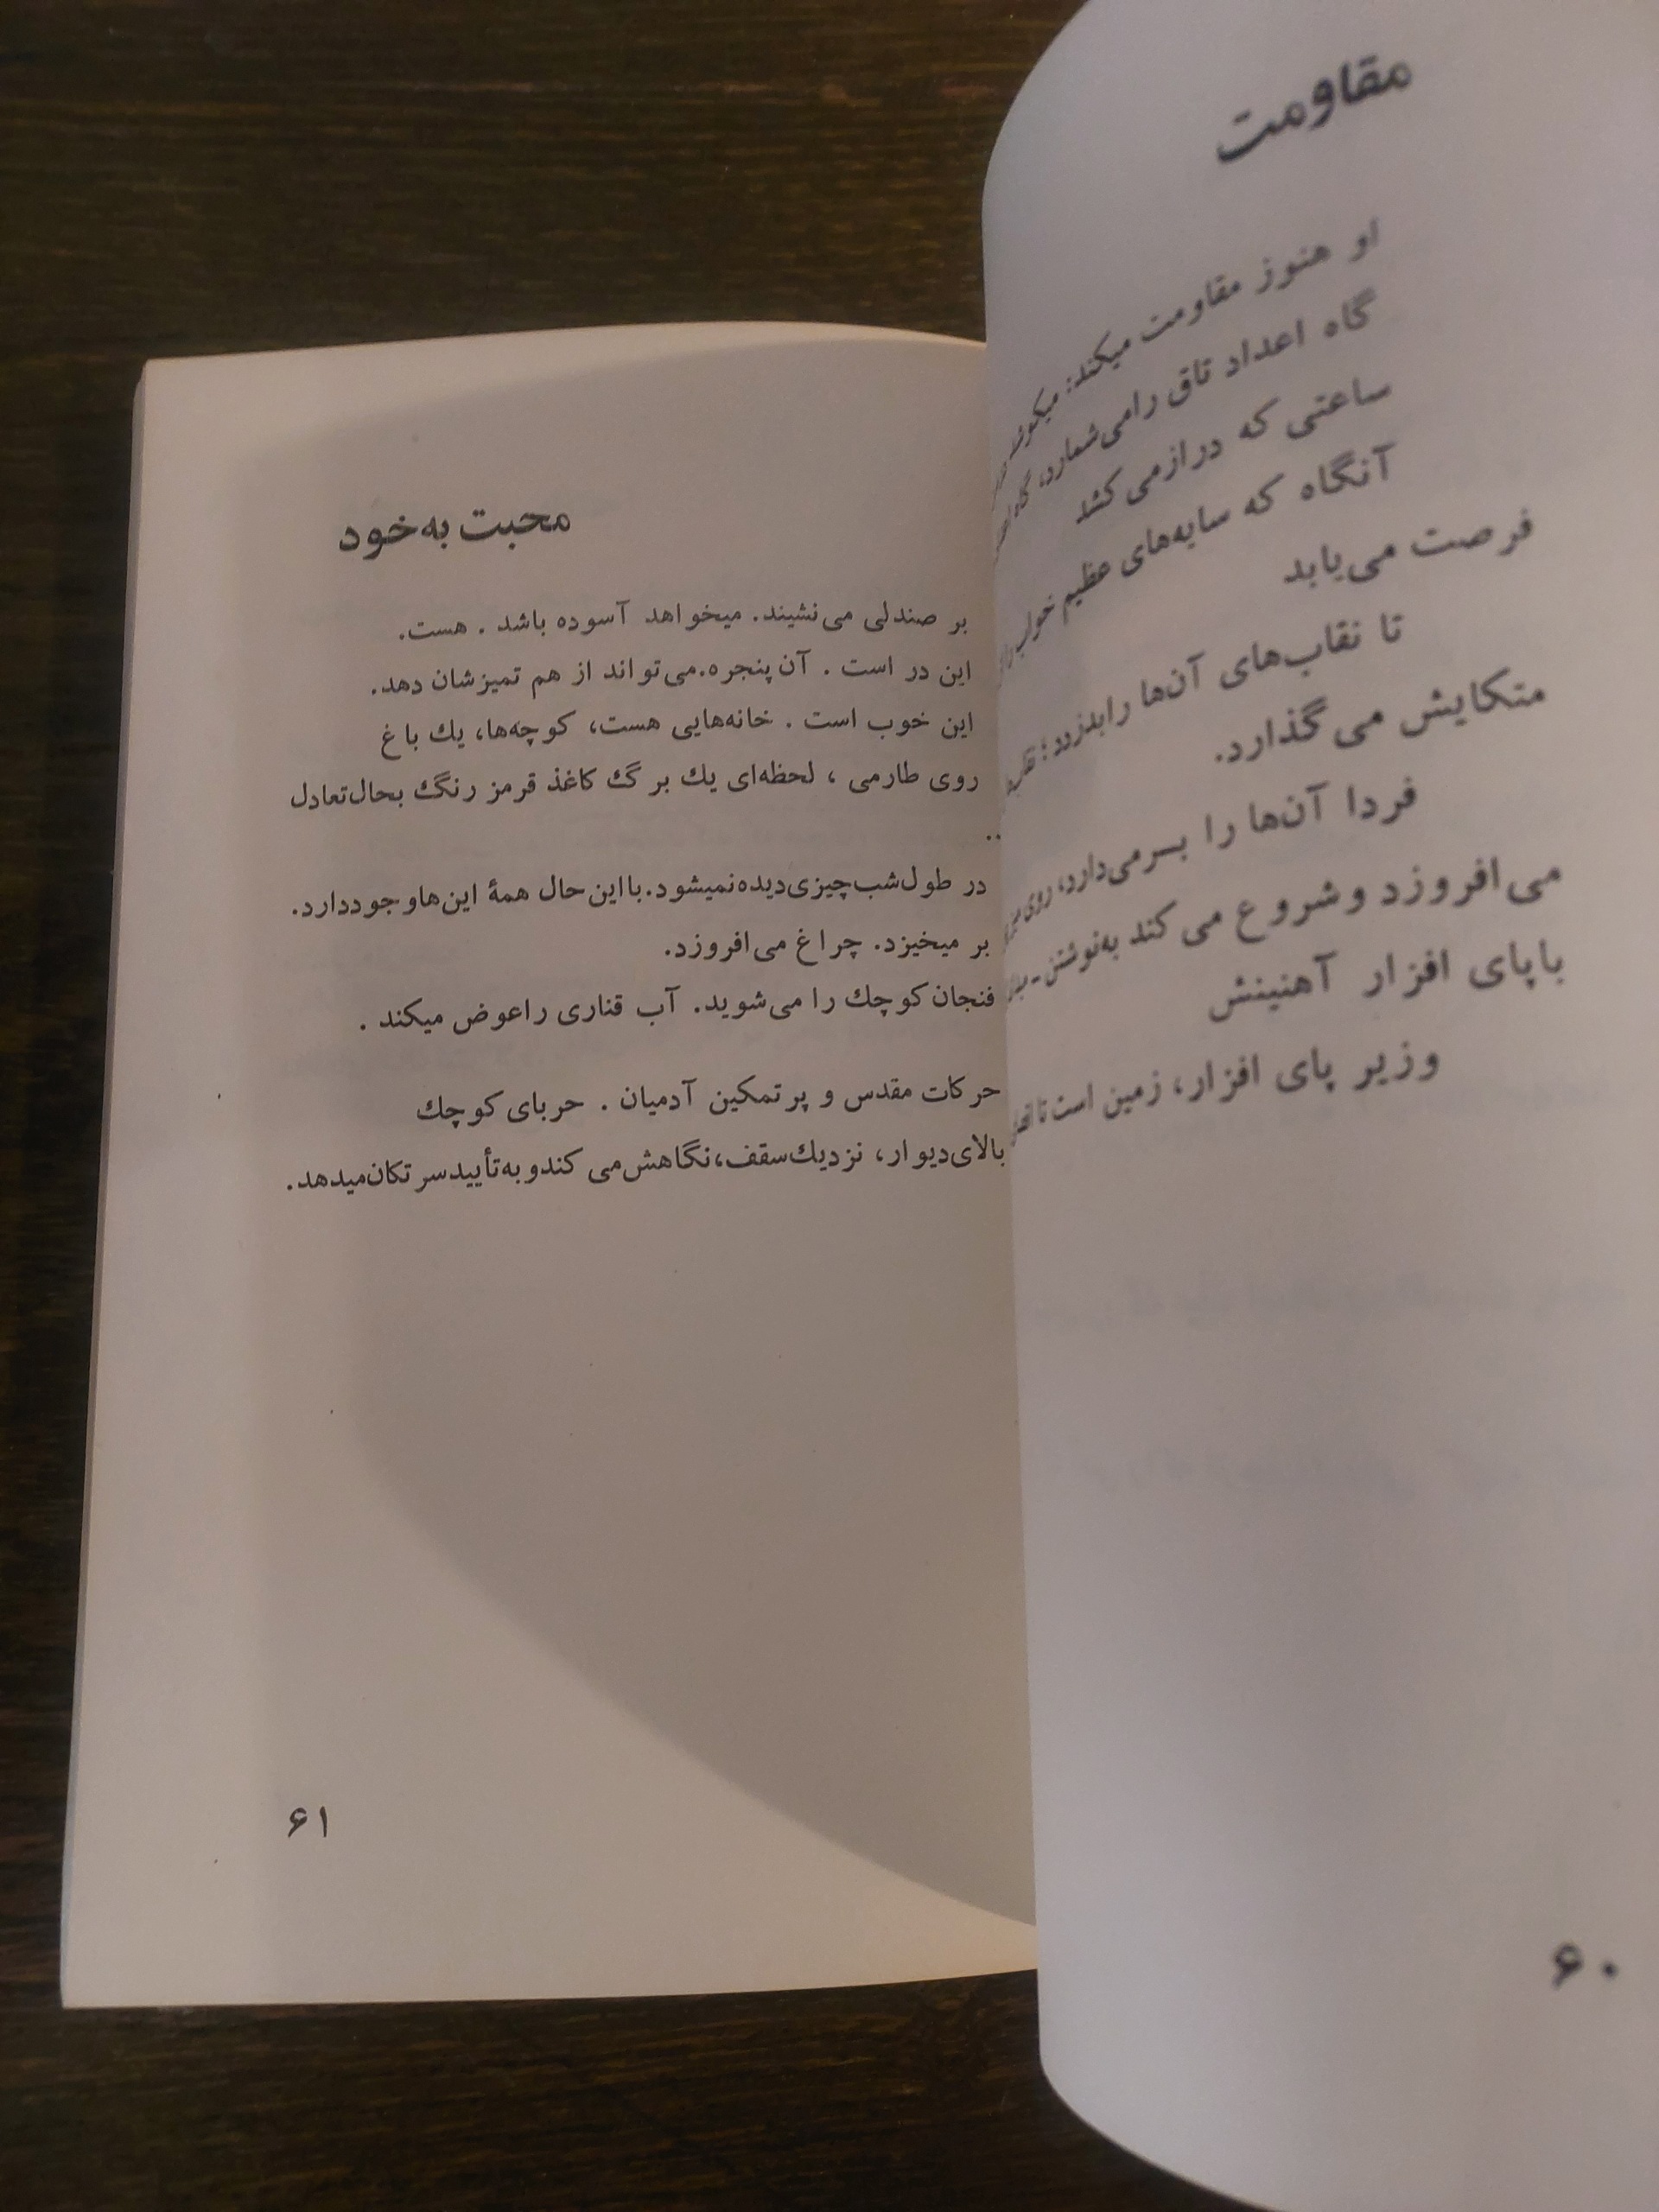 مقاومت
او هنوز مقاومت میکند: میکوشد
گاه اعداد تاق رامی‌شمارد، گاه
ساعتی که درازمی کشد
آنگاه که سایه‌های عظیم خواب را
فرصت می‌یابد
تا نقاب‌های آن‌ها رابدزدد؛
متکایش می گذارد.
فردا آن‌ها را برمی‌دارد، روی
می‌افروزد و شروع می کند به‌نوشتن -
باپای افزار آهنینش
وزیر پای افزار، زمین است تا
۶۰
محبت به‌خود
بر صندلی می‌نشیند. میخواهد آسوده باشد . هست.
این در است . آن پنجره.می‌تواند از هم تمیزشان دهد.
این خوب است . خانه‌هایی هست، کوچه‌ها، یك باغ
روی طارمی ، لحظه‌ای یك برگ کاغذ قرمز رنگ بحال‌تعادل
..
در طول‌شب‌چیزی‌دیده‌نمیشود.بااین‌حال همهٔ این‌هاوجوددارد.
بر میخیزد. چراغ می‌افروزد.
فنجان کوچك را می‌شوید. آب قناری راعوض میکند .
حرکات مقدس و پرتمکین آدمیان . حربای کوچك
بالای‌دیوار، نزدیك‌سقف،نگاهش‌می کندوبه‌تأییدسرتکان‌میدهد.
۶۱